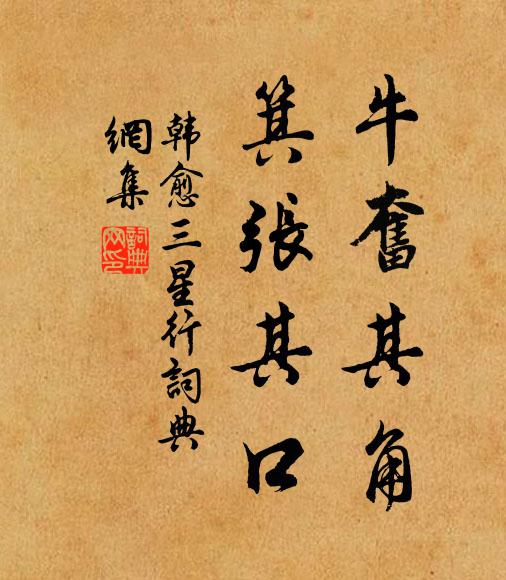 牛奮其角
箕張其口
韩愈三星行詞典
網集
詞典
网印